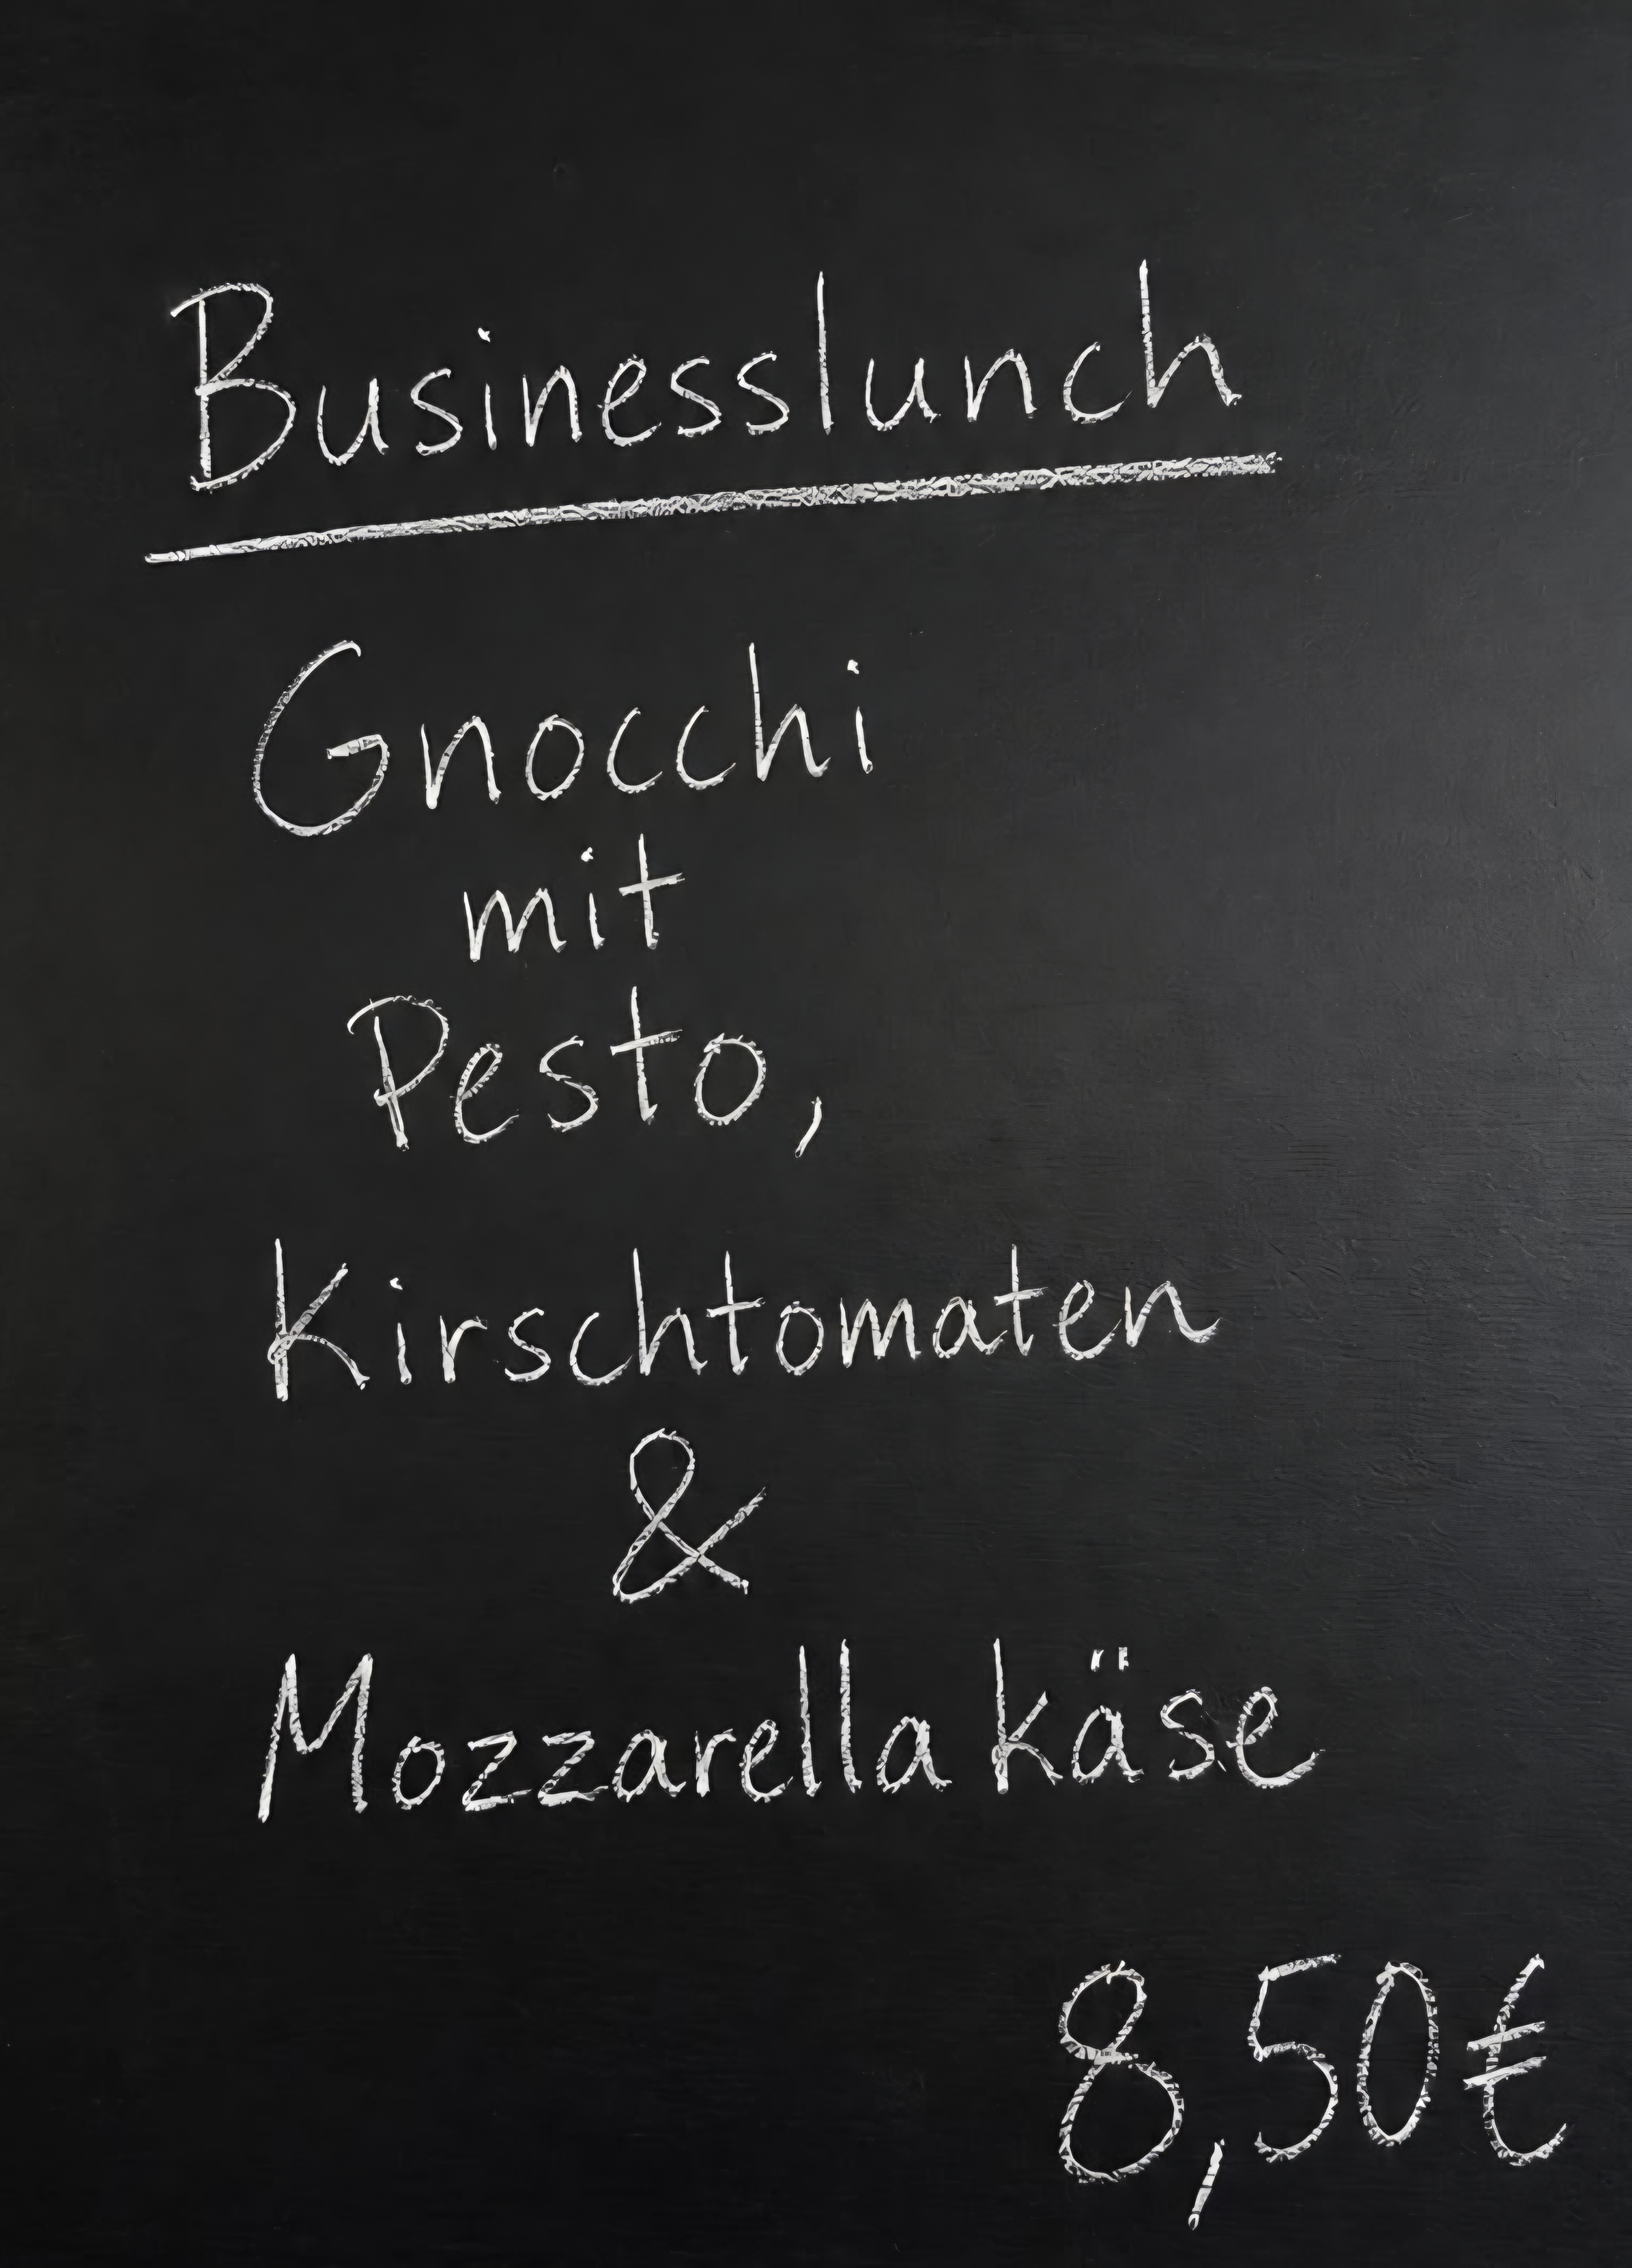 Businesslunch
Gnocchi
mit
Pesto,
Kirschtomaten
&
Mozzarella käse
8,50€